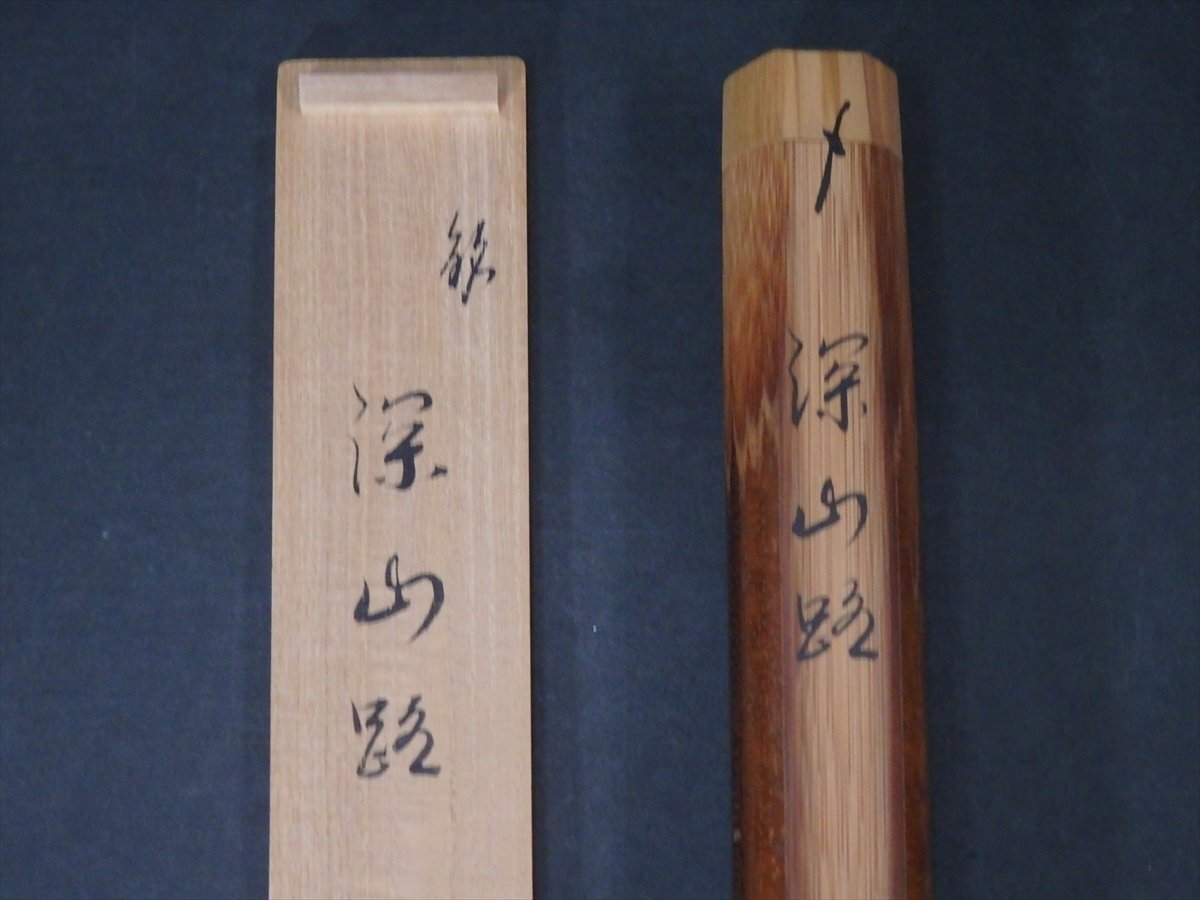 銘
深山路
〆
深山路